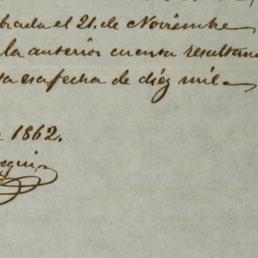 brada el 21. de Noviembre
la anterior cuenta resultan
esa fecha de diéz mil
1862.